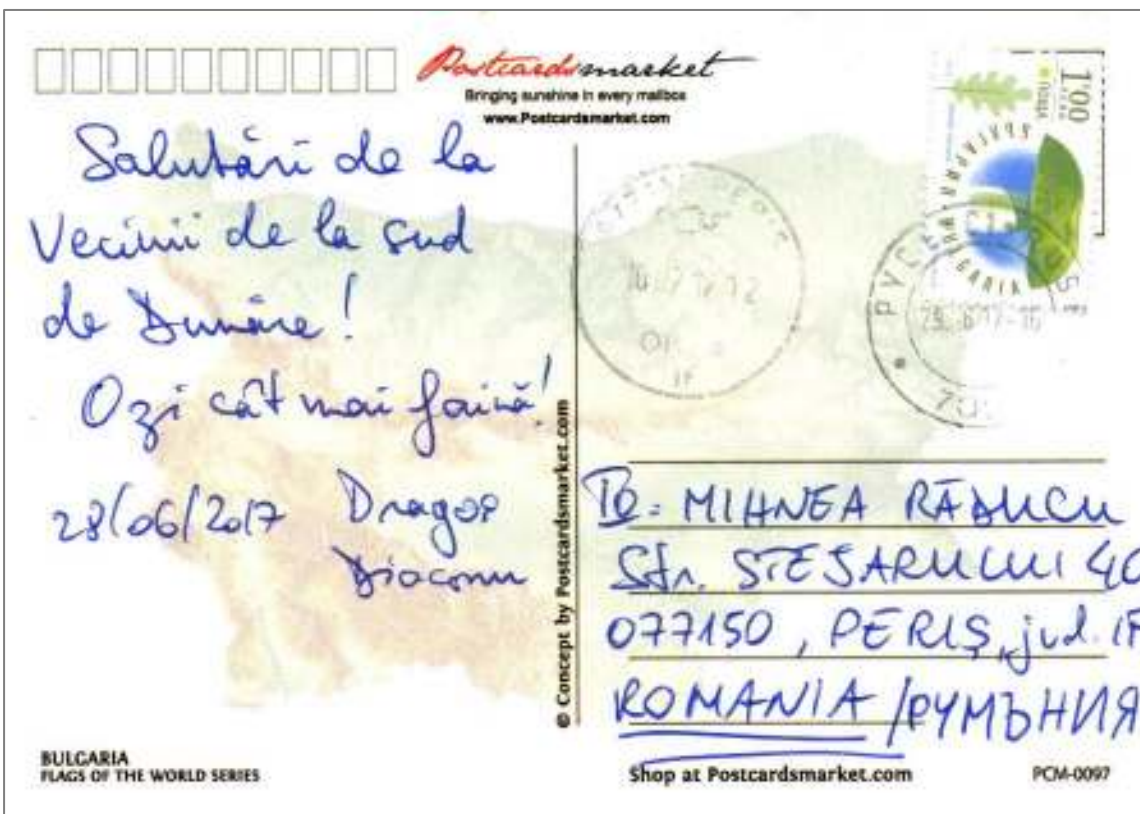 Postcardsmarket
Bringing sunshine in every mailbox
www.Postcardsmarket.com
Salutări de la
Vecinii de la sud
de Dunăre!
O zi cât mai faină!
28/06/2017 Dragoș
Diaconu
© Concept by Postcardsmarket.com
1.00
ПОЩА
БЪЛГАРИЯ
РУСЕ
To: MIHNEA RĂDUCU
Str. STEJARULUI 40
077150, PERIȘ, jud. IF
ROMANIA / РУМЪНИЯ
BULGARIA
FLAGS OF THE WORLD SERIES
Shop at Postcardsmarket.com
PCM-0097